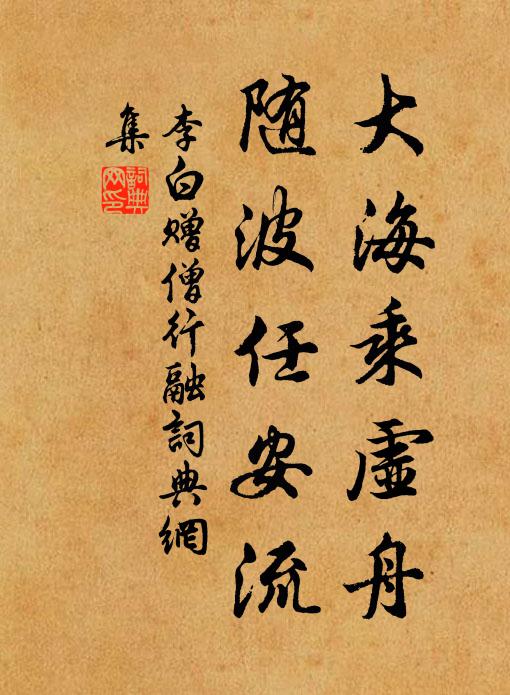 大海乘虛舟
随波任安流
李白赠僧行融詞典網
集
詞典網印